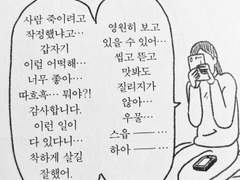 사람 죽이려고
작정했냐고…
갑자기
이럼 어떡해…
너무 좋아…
따흐흑… 뭐야?!
감사합니다.
이런 일이
다 있다니…
착하게 살길
잘했어.
영원히 보고
있을 수 있어…
씹고 뜯고
맛봐도
질리지가
않아…
우물…
스읍 ― …
하아 ― …